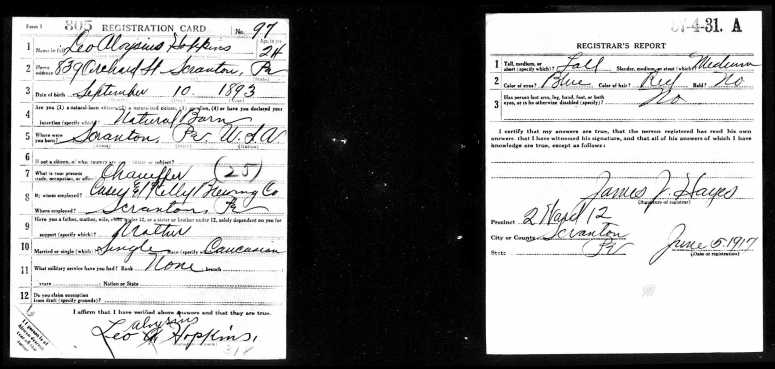 Form 1 805 REGISTRATION CARD No. 97
1 Name in full Leo Aloysius Hopkins Age, in yrs. 24
2 Home address 839 Orchard St Scranton, Pa
3 Date of birth September 10 1893
4 Are you (1) a natural-born citizen, (2) a naturalized citizen, (3) an alien, (4) or have you declared your intention (specify which)? Natural Born
5 Where were you born? Scranton, Pa. U.S.A
6 If not a citizen, of what country are you a citizen or subject?
7 What is your present trade, occupation, or office? Chauffer (25)
8 By whom employed? Casey & Kelly Brewing Co
Where employed? Scranton, Pa
9 Have you a father, mother, wife, child under 12, or a sister or brother under 12, solely dependent on you for support (specify which)? Mother
10 Married or single (which)? Single Race (specify which)? Caucasian
11 What military service have you had? Rank None branch
years Nation or State
12 Do you claim exemption from draft (specify grounds)?
I affirm that I have verified above answers and that they are true.
Aloysius
Leo A Hopkins.
37-4-31. A
REGISTRAR'S REPORT
1 Tall, medium, or short (specify which)? Tall Slender, medium, or stout (which)? Medium
2 Color of eyes? Blue Color of hair? Red Bald? No
3 Has person lost arm, leg, hand, foot, or both eyes, or is he otherwise disabled (specify)? No
I certify that my answers are true, that the person registered has read his own
answers, that I have witnessed his signature, and that all of his answers of which I have
knowledge are true, except as follows:
James J. Hayes
(Signature of registrar)
Precinct 2 Ward 12
City or County Scranton
State Pa June 5-1917
(Date of registration)